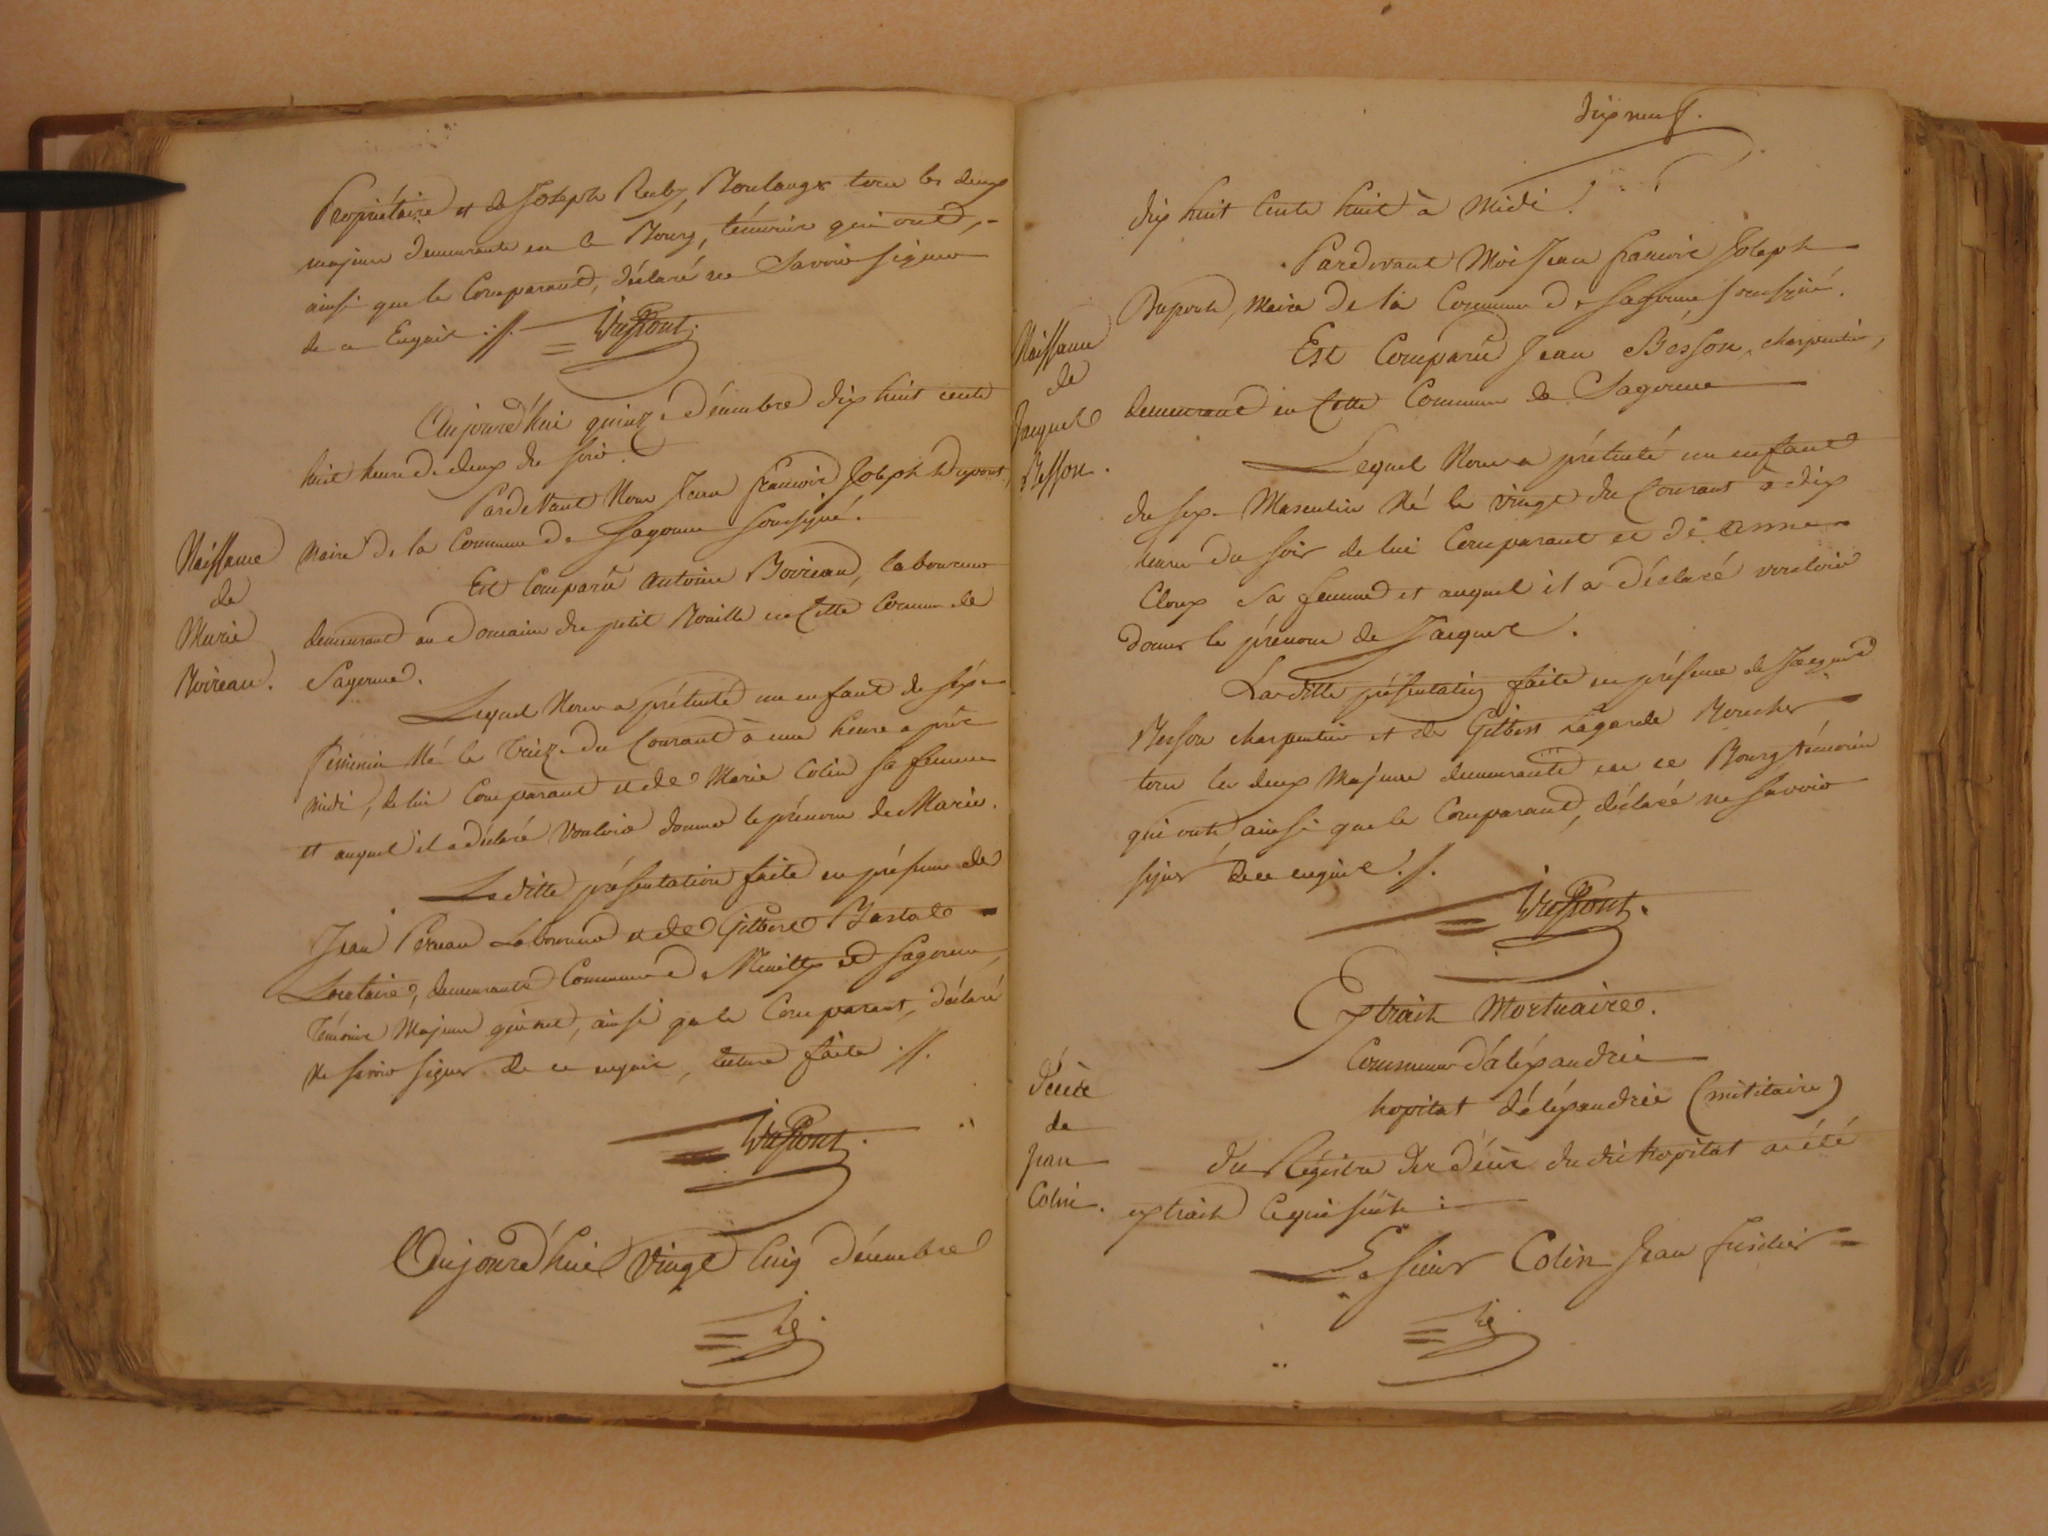 Propriétaire et de Joseph Ruby, Boulanger tous les deux
majeurs demeurants en ce Bourg, témoins qui ont,
ainsi que le Comparant, déclaré ne Savoir Signer
de ce Enquis ./.
Dupont.
Aujourd'hui quinze décembre dix huit cents
huit heure de deux du soir.
Pardevant Nous Jean François Joseph Dupont,
Maire de la Commune de Sagonne soussigné.
Naissance
de
Marie
Boireau.
Est Comparu Antoine Boireau, laboureur
demeurant au Domaine du petit Rouille en Cette Commune de
Sagonne.
Lequel Nous a présenté un enfant de sexe
féminin Né le treize du Courant à une heure après
midi, de lui Comparant et de Marie Colin sa femme
et auquel il a déclaré Vouloir donner le prénom de Marie.
Laditte présentation faite en présence de
Jean Perreau Laboureur et de Gilbert Bastale
Locataire, demeurants Commune de Neuilly et Sagonne,
témoins Majeurs qui ont, ainsi que le Comparant, déclaré
ne savoir signer de ce enquis, lecture faite ./.
Dupont.
Aujourd'hui Vingt Cinq décembre
dix neuf.
dix huit Cents huit à Midi.
Pardevant Moi Jean François Joseph
Dupont, Maire de la Commune de Sagonne, soussigné.
Naissance
de
Jacques
Besson.
Est Comparu Jean Besson, charpentier,
demeurant en Cette Commune de Sagonne
Lequel Nous a présenté un enfant
du sexe Masculin Né le vingt du Courant à dix
heures du soir de lui Comparant et de Anne
Cloux sa femme et auquel il a déclaré vouloir
donner le prénom de Jacques.
Laditte présentation faite en présence de Jacques
Besson charpentier et de Gilbert Lagarde Boucher
tous les deux Majeurs demeurants en ce Bourg témoins
qui ont ainsi que le Comparant, déclaré ne savoir
signer de ce enquis ./.
Dupont.
Extrait Mortuaire.
Commune d'aléxandrie
hopital d'aléxandrie (militaire)
décès
de
Jean
Colin.
du Régistre des décès dudit hopital a été
extrait Ce qui suit :
Le sieur Colin Jean fusilier